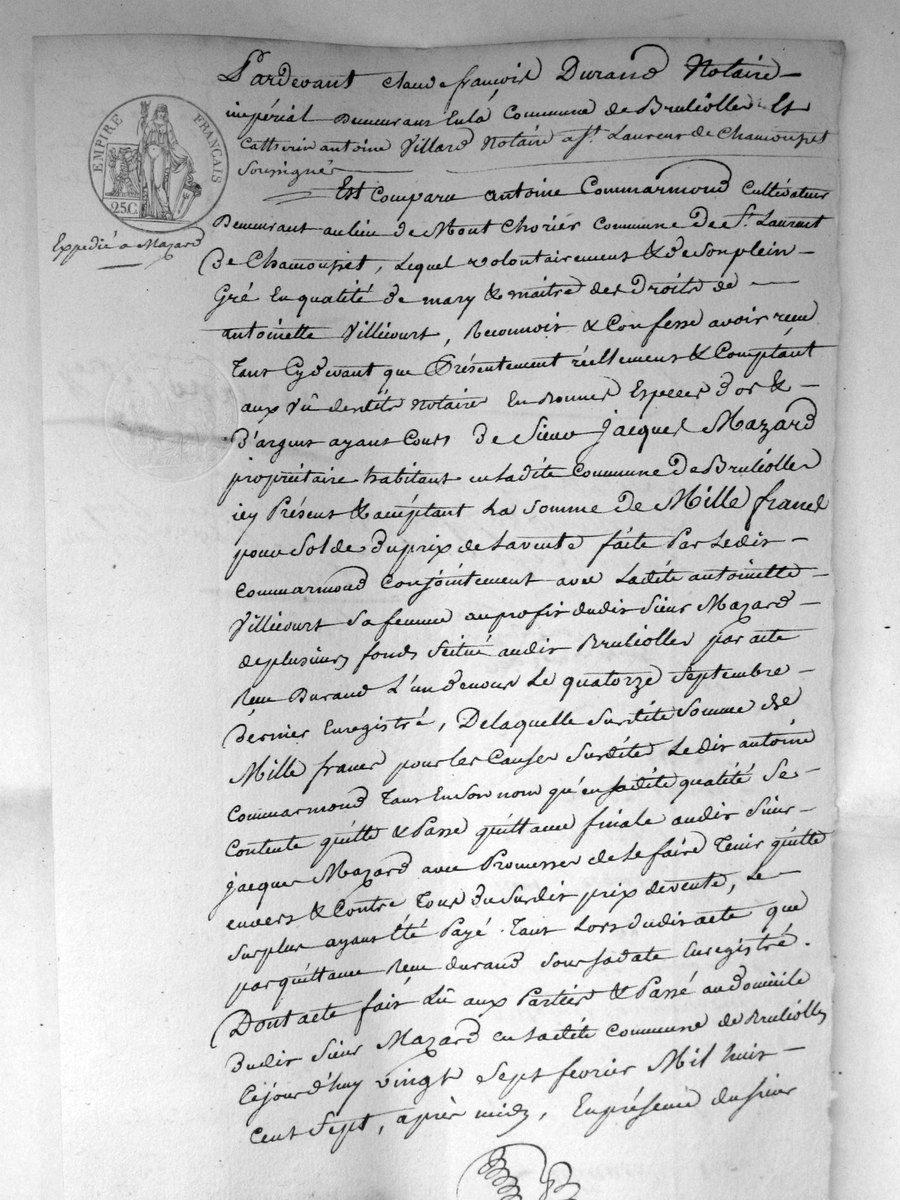 EMPIRE FRANÇAIS
25C.
Expedié a Mazard
Pardevant Claude françois Durand Notaire
impérial Demeurant En la Commune de Brullolles Et
Catherin antoine Villard Notaire a St. Laurent de Chamousset
Soussignés
Est Comparu antoine Commarmond Cultivateur
Demeurant au lieu de Mont Chorier Commune de St. Laurent
De Chamousset, Lequel volontairement & de son plein
Gré En qualité de mary & maitre des Droits de
antoinette Villecourt, Reconnoit & Confesse avoir reçu
Tant Cydevant que Présentement réellement & Comptant
aux Vû desdits Notaire En bonnes Especes d'or &
D'argent ayant Cours De Sieur jacques Mazard
propriétaire habitant en ladite Commune De Brullolles
icy Présent & acceptant La Somme De Mille francs
pour Solde Du prix de La vente faite Par Ledit
Commarmond Conjointement avec Ladite antoinette
Villecourt Sa femme au profit dudit Sieur Mazard
de plusieurs fonds Scitué audit Brullolles par acte
Reçu Durand L'un de nous Le quatorze Septembre
Dernier Enregistré, De laquelle Surdite Somme de
Mille francs pour les Causes Surdites Ledit antoine
Commarmond Tant En Son nom qu'en Sadite qualité Se
Contente quitte & Passe quittance finale audit Sieur
jacques Mazard avec Promesses de le faire Tenir quitte
envers & Contre Tous Du Surdit prix de vente, Le
Surplus ayant Eté Payé Tant Lors dudit acte que
par quittance Reçue durand Sous Sa date Enregistré.
Dont acte fait Lû aux Parties & Passé au domicile
Dudit Sieur Mazard en Ladite Commune de Brullolles
Cejourd'huy vingt Sept fevrier Mil huit
Cent Sept, après midy, En présence du sieur